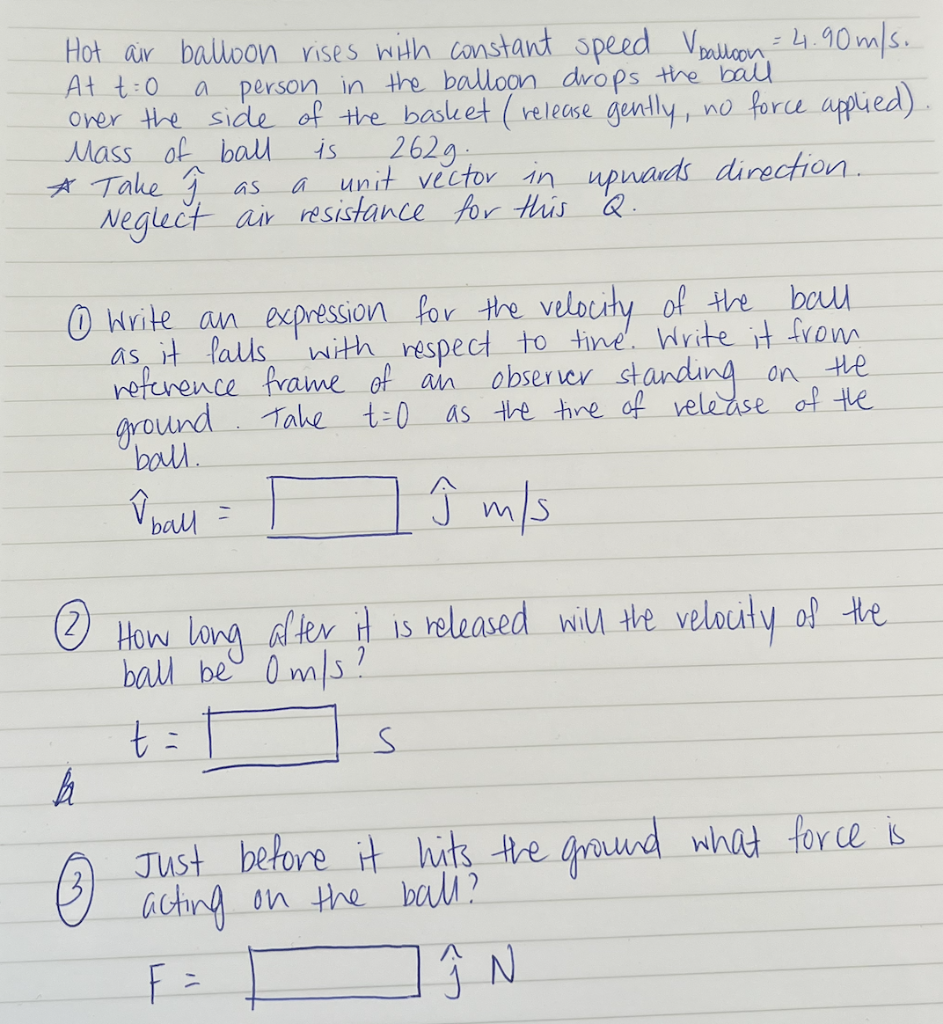 Hot air balloon rises with constant speed Vballoon = 4.90 m/s.
At t=0 a person in the balloon drops the ball
over the side of the basket (release gently, no force applied).
Mass of ball is 262g.
* Take ĵ as a unit vector in upwards direction.
Neglect air resistance for this Q.
① Write an expression for the velocity of the ball
as it falls with respect to time. Write it from
reference frame of an observer standing on the
ground. Take t=0 as the time of release of the
ball.
v̂ball = ĵ m/s
② How long after it is released will the velocity of the
ball be 0 m/s?
t = s
③ Just before it hits the ground what force is
acting on the ball?
F = ĵ N